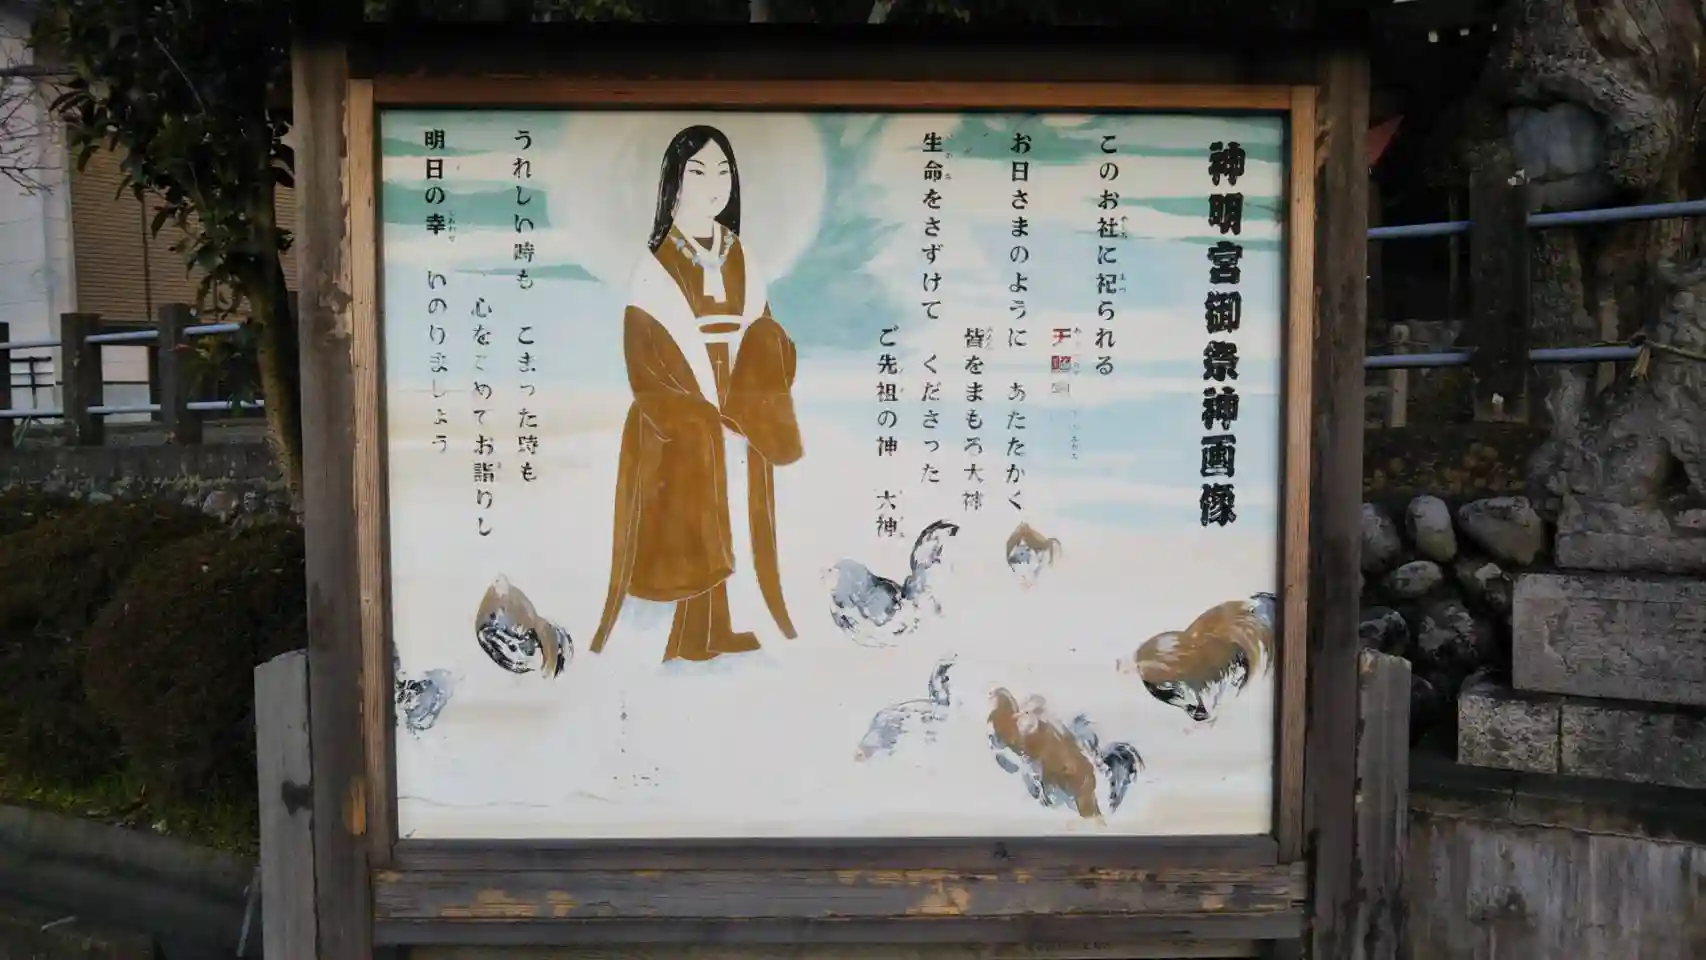 神明宮御祭神画像
このお社に祀られる
天照
お日さまのように あたたかく
皆をまもる大神
生命をさずけて くださった
ご先祖の神 大神
うれしい時も こまった時も
心をこめてお詣りし
明日の幸 いのりましょう